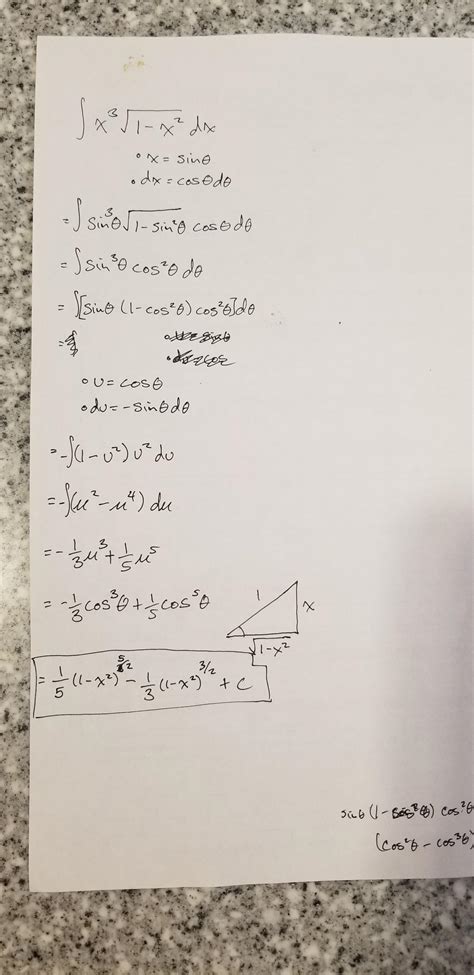 ∫ x³ √(1-x²) dx
• x = sinθ
• dx = cosθ dθ
= ∫ sin³θ √(1-sin²θ) cosθ dθ
= ∫ sin³θ cos²θ dθ
= ∫ [sinθ (1-cos²θ) cos²θ] dθ
=
• u = cosθ
• du = -sinθ dθ
= -∫ (1-u²) u² du
= -∫ (u² - u⁴) du
= -1/3 u³ + 1/5 u⁵
= -1/3 cos³θ + 1/5 cos⁵θ
1
x
√(1-x²)
= 1/5 (1-x²)^5/2 - 1/3 (1-x²)^3/2 + C
sinθ (1- cos²θ) cos²θ
(cos²θ - cos³θ)